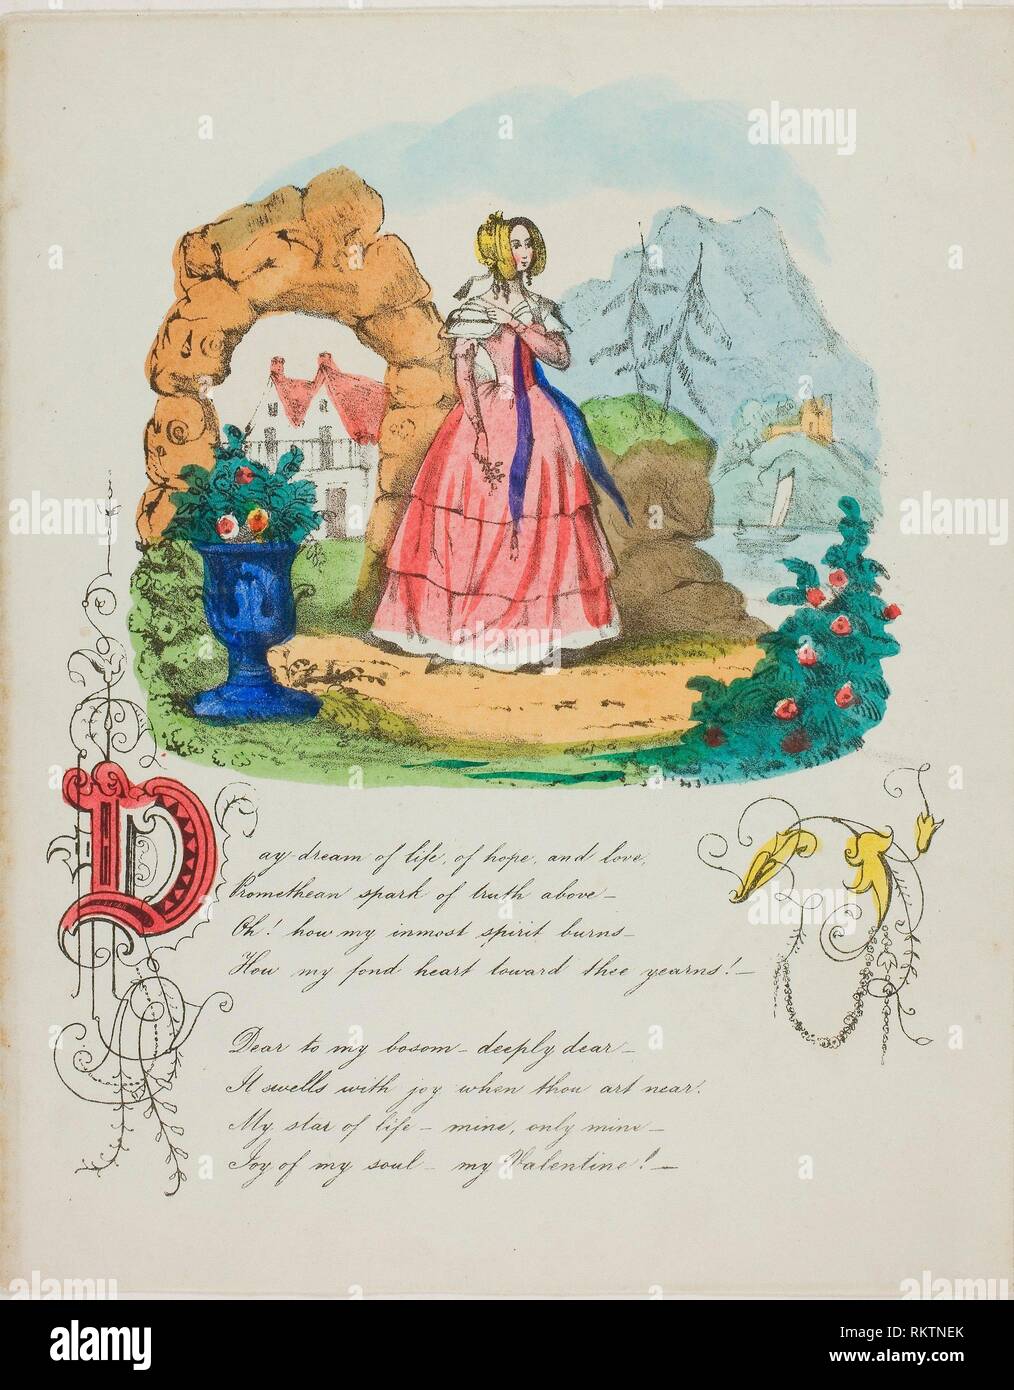 Day-dream of life, of hope, and love,
Promethean spark of truth above—
Oh! how my inmost spirit burns—
How my fond heart toward thee yearns!—
Dear to my bosom—deeply dear—
It swells with joy when thou art near!
My star of life—mine, only mine—
Joy of my soul—my Valentine!—
alamy
Image ID: RKTNEK
www.alamy.com